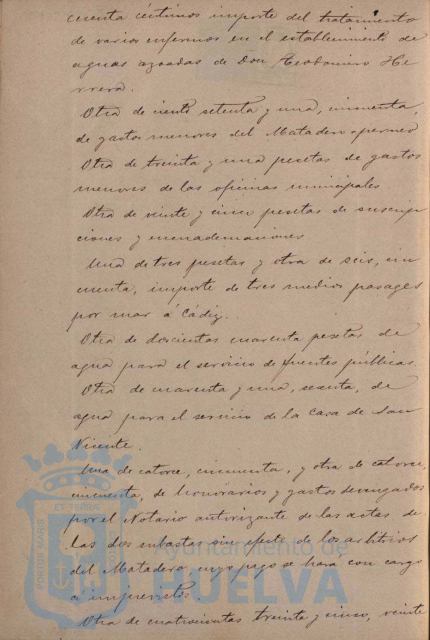 cuenta céntimos importe del tratamiento
de varios enfermos en el establecimiento de
aguas azoadas de Don Teodomiro He
rrera.
Otra de ciento setenta y una, cincuenta,
de gastos menores del Matadero
Otra de treinta y una pesetas de gastos
menores de las oficinas municipales
Otra de veinte y cinco pesetas de suscrip
ciones y encuadernaciones
Una de tres pesetas y otra de seis, cin
cuenta, importe de tres medios pasages
por mar á Cádiz.
Otra de doscientas cuarenta pesetas de
agua para el servicio de fuentes públicas.
Otra de cuarenta y una, sesenta, de
agua para el servicio de la Casa de San
Vicente.
Una de catorce, cincuenta, y otra de catorce,
cincuenta, de honorarios y gastos devengados
por el Notario autorizante de las actas de
las dos subastas sin efecto de los arbitrios
del Matadero cuyo pago se hará con cargo
á imprevistos.
Otra de cuatrocientas treinta y cinco, veinte
PORTUS MARIS
ET TERRAE
Ayuntamiento de
HUELVA